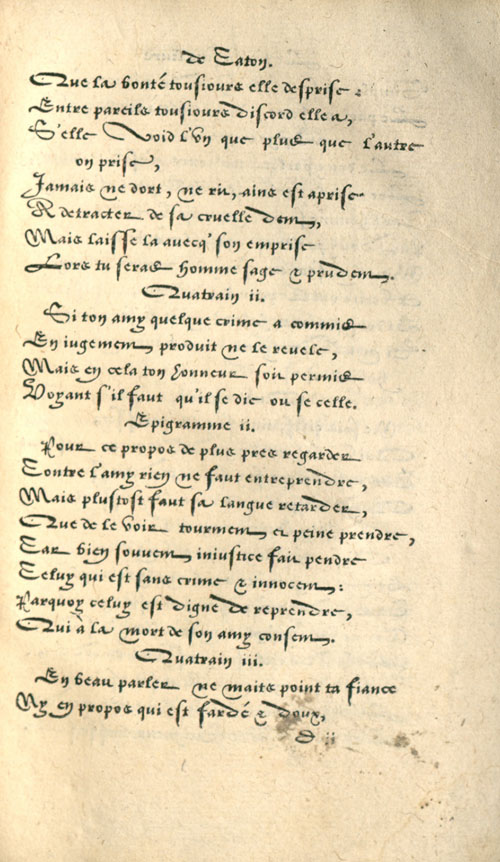 de Caton.
Que la bonté tousiours elle desprise :
Entre pareils tousiours discord elle a,
S'elle void l'vn que plus que l'autre
on prise,
Jamais ne dort, ne rit, ains est aprise
A detracter de sa cruelle dent,
Mais laisse la auecq' son emprise
Lors tu seras homme sage & prudent.
Quatrain ii.
Si ton amy quelque crime a commis
En iugement produit ne le reuele,
Mais en cela ton honneur soit permis
Voyant s'il faut qu'il se die ou se celle.
Epigramme ii.
Pour ce propos de plus pres regarder
Contre l'amy rien ne faut entreprendre,
Mais plustost faut sa langue retarder,
Que de le voir tourment et peine prendre,
Car bien souuent iniustice fait pendre
Celuy qui est sans crime & innocent :
Parquoy celuy est digne de reprendre,
Qui à la mort de son amy consent.
Quatrain iii.
En beau parler ne mets point ta fiance
Ny en propos qui est fardé & doux,
d ii